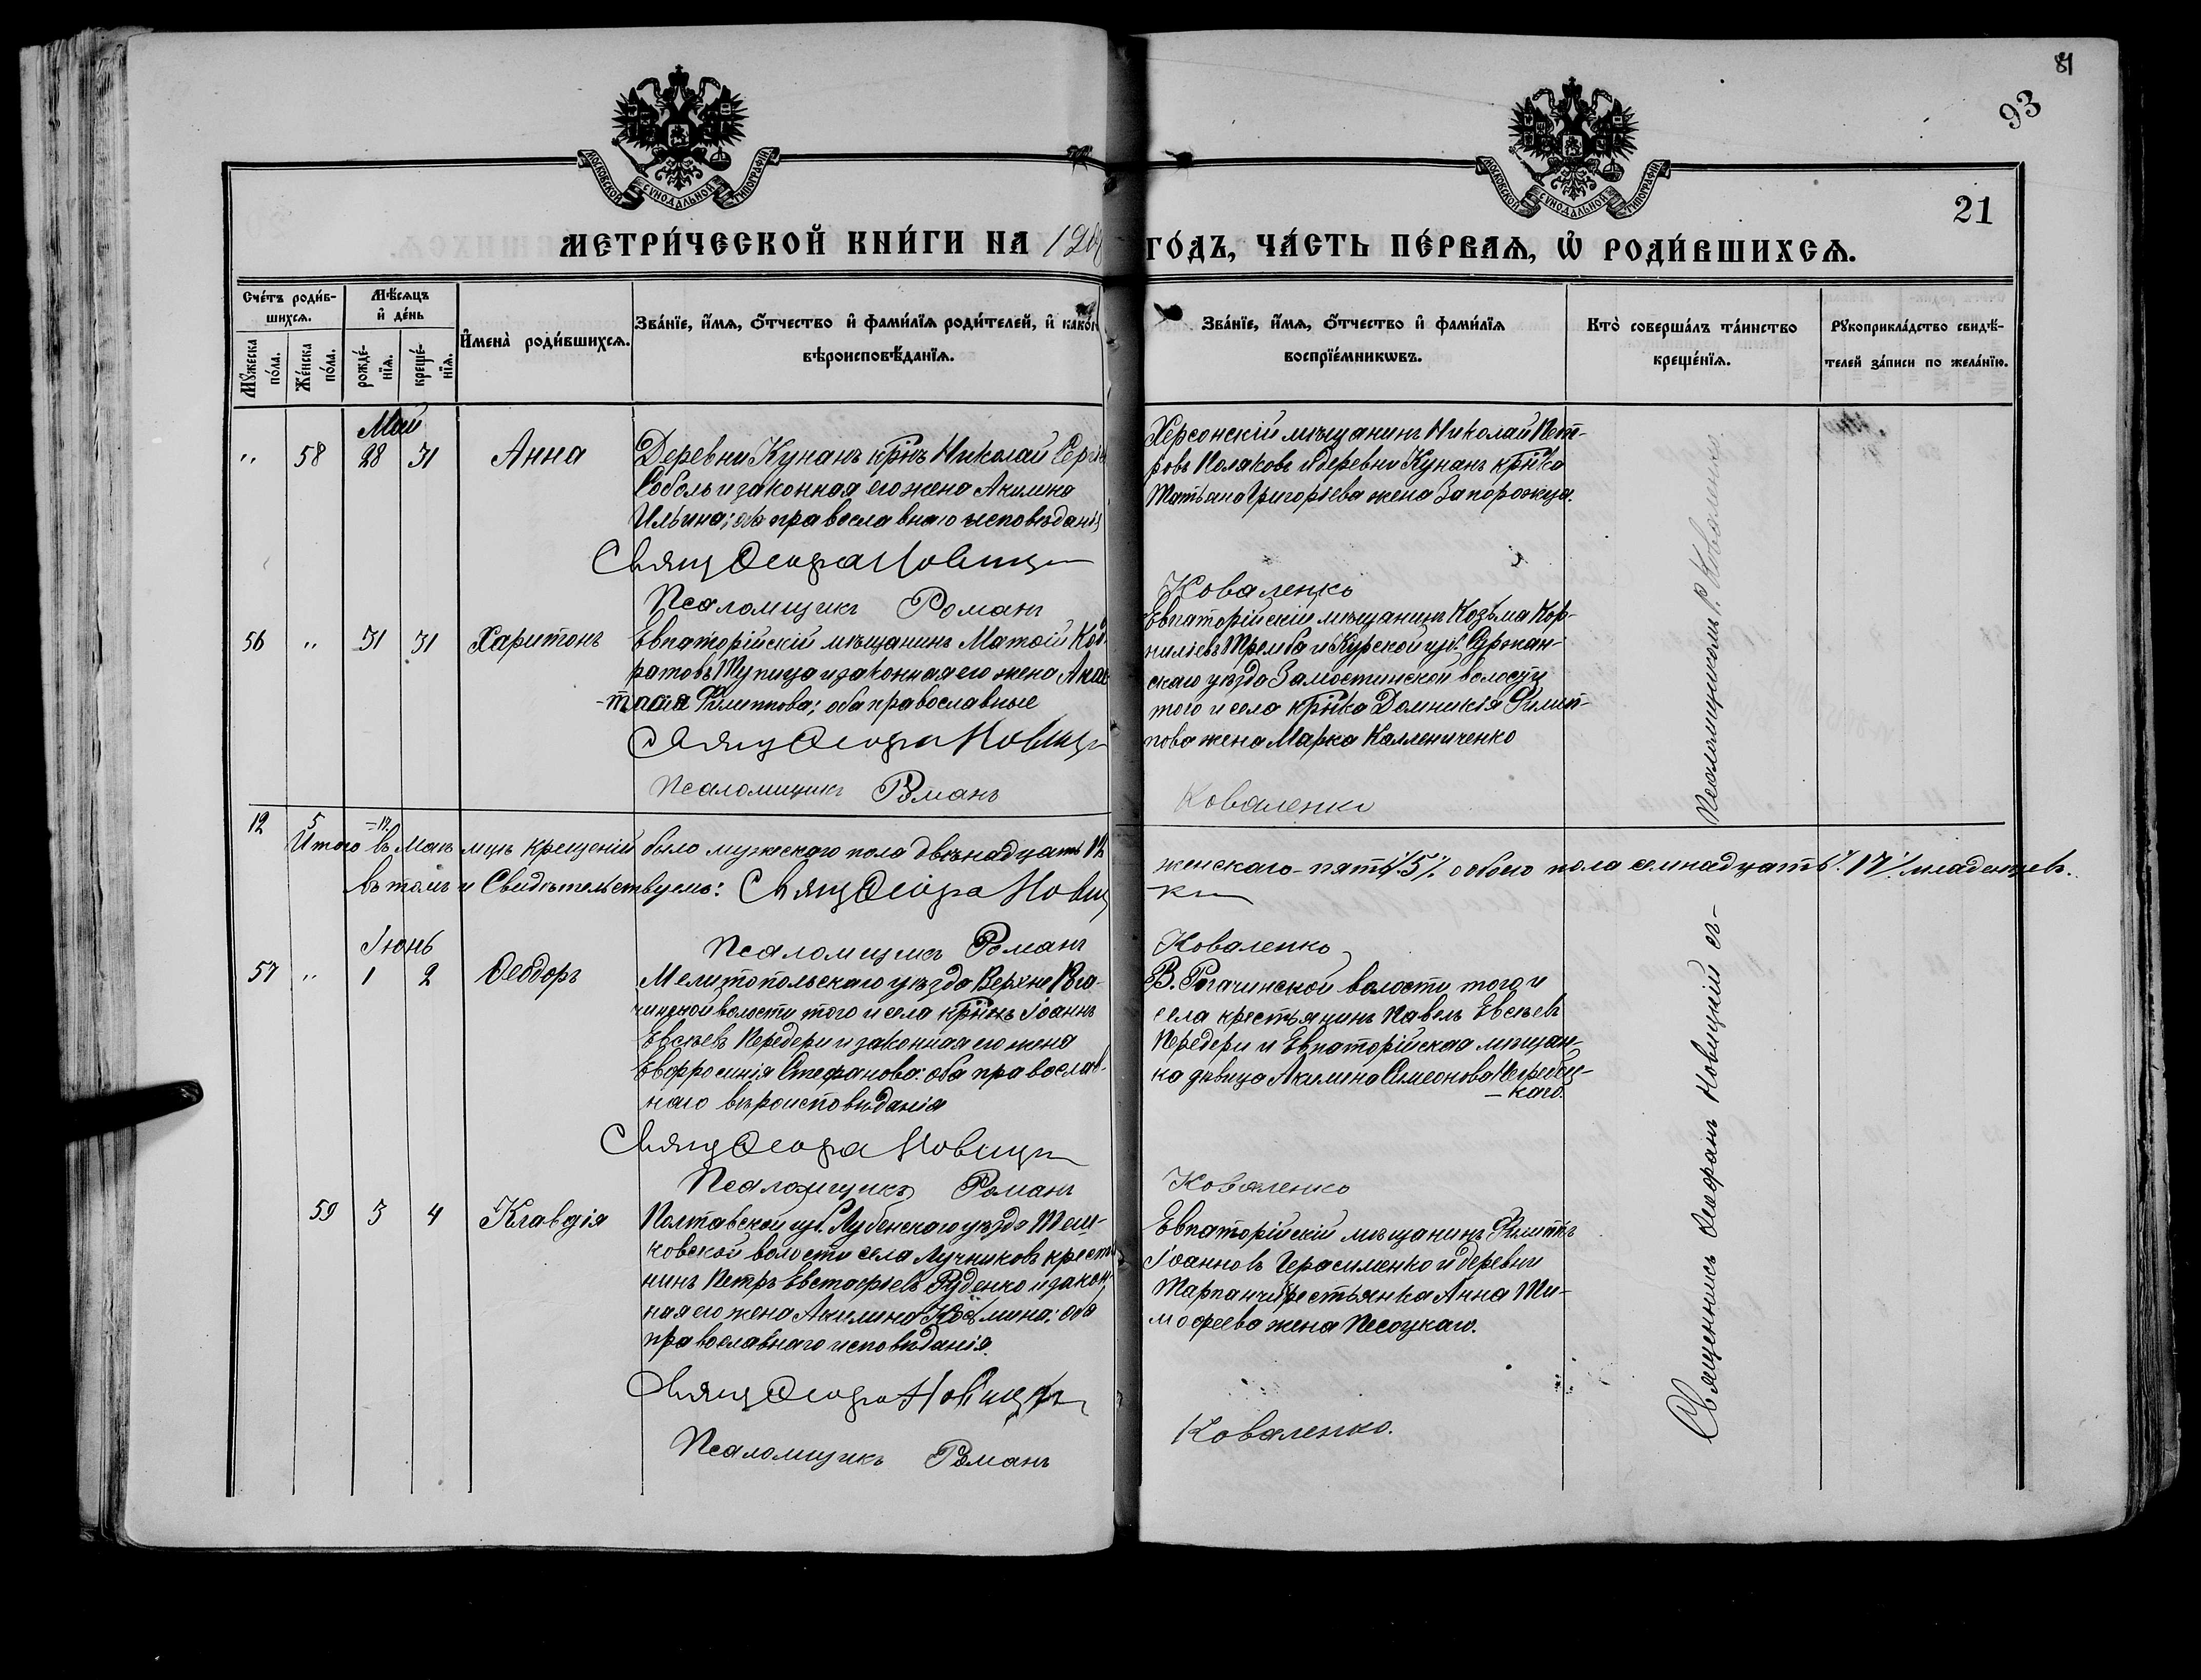 81
93
21
МОСКОВСКОЙ СѴНОДАЛЬНОЙ ТИПОГРАФІИ
МОСКОВСКОЙ СѴНОДАЛЬНОЙ ТИПОГРАФІИ
МЕТРИ́ЧЕСКОЙ КНИ́ГИ НА
ГО́ДЪ, ЧА́СТЬ ПЕ́РВАѦ, Ѡ҆ РОДИ́ВШИХСѦ.
Сче́тъ роди́в-
шихсѧ.
Мꙋ́жеска по́ла.
Же́нска по́ла.
Мѣ́сѧцъ
и҆ де́нь
рожде́-
нїѧ.
креще́-
нїѧ.
И҆мена̀ роди́вшихсѧ.
Зва́нїе, и҆́мѧ, ѻ҆́тчество и҆ фами́лїѧ роди́телей, и҆ како́гѡ
вѣроисповѣ́данїѧ.
Зва́нїе, и҆́мѧ, ѻ҆́тчество и҆ фами́лїѧ
воспрїе́мникѡвъ.
Кто̀ соверша́лъ та́инство
креще́нїѧ.
Рꙋкоприкла́дство свидѣ́-
телей за́писи по жела́нїю.
Май
" 58 28 31 Анна
Деревни Кунанъ крнъ Николай Сергіев
Соболь и законная его жена Акилина
Ильина; оба православнаго исповѣданія
Свящ Ѳеофанъ Новицкій
Псаломщикъ Романъ Коваленко
Херсонскій мѣщанинъ Николай Пет-
ровъ Поляковъ и деревни Кунанъ крнка
Татьяна Григорьева жена Запорожца.
56 " 31 31 Харитонъ
Евпаторійскій мѣщанинъ Матѳій Код-
ратовъ Тупица и законная его жена Анас-
-тасія Филиппова; оба православные
Свящ Ѳеофанъ Новицкій
Псаломщикъ Романъ Коваленко
Евпаторійскій мѣщанинъ Козьма Кор-
ниліевъ Тремба и Курской губ. Суржан-
скаго уѣзда Замостинской волости
того и села крнка Домникія Филип-
пова жена Марка Каллениченко
12 5 =17.
Итого въ маѣ мцѣ крещеній было мужескаго пола двѣнадцать 12 женскаго-пять "5", обоего пола семнадцать "17" младенцевъ.
въ томъ и Свидѣтельствуемъ: Свящ Ѳеофанъ Новицкій
Псаломщикъ Романъ Коваленко
Іюнь
57 " 1 2 Ѳеодоръ
Мелитопольскаго уѣзда Верхне Рога-
чинской волости того и села крнъ Іоаннъ
Евсѣевъ Передери и законная его жена
Евфросинія Стефанова: оба православ-
наго вѣроисповѣданія
Свящ Ѳеофанъ Новицкій
Псаломщикъ Романъ Коваленко
В. Рогачинской волости того и
села крестьянинъ Павелъ Евсѣевъ
Передери и Евпаторійская мѣщан-
ка дѣвица Акилина Симеонова
-каго.
59 3 4 Клавдія
Полтавской губ. Лубенскаго уѣзда Теш-
ковской волости села Лучниковъ крестья
нинъ Петръ Евстафіевъ Руденко и закон-
ная его жена Акилина Козьмина: оба
православнаго исповѣданія.
Свящ Ѳеофанъ Новицкій
Псаломщикъ Романъ Коваленко.
Евпаторійскій мѣщанинъ Филиппъ
Іоанновъ Герасименко и деревни
Тарпанчи крестьянка Анна Ти-
мофеева жена Песоцкаго.
Священникъ Ѳеофанъ Новицкій съ-
Псаломщикомъ Р. Коваленко